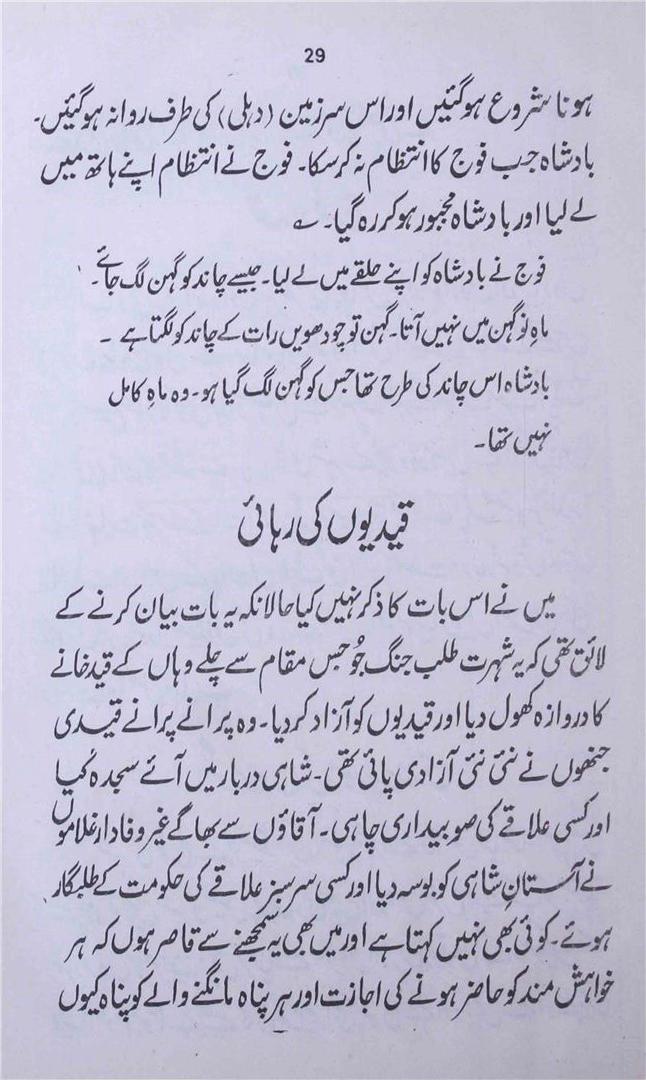 29
ہونا شروع ہوگئیں اور اس سرزمین (دہلی) کی طرف روانہ ہوگئیں۔
بادشاہ جب فوج کا انتظام نہ کرسکا۔ فوج نے انتظام اپنے ہاتھ میں
لے لیا اور بادشاہ مجبور ہوکر رہ گیا۔ ؎
فوج نے بادشاہ کو اپنے حلقے میں لے لیا۔ جیسے چاند کو گہن لگ جائے۔
ماہِ نو گہن میں نہیں آتا۔ گہن تو چودھویں رات کے چاند کو لگتا ہے ۔
بادشاہ اس چاند کی طرح تھا جس کو گہن لگ گیا ہو۔ وہ ماہِ کامل
نہیں تھا۔
قیدیوں کی رہائی
میں نے اس بات کا ذکر نہیں کیا حالانکہ یہ بات بیان کرنے کے
لائق تھی کہ یہ شہرت طلب جنگ جُو جس مقام سے چلے وہاں کے قید خانے
کا دروازہ کھول دیا اور قیدیوں کو آزاد کردیا۔ وہ پرانے پرانے قیدی
جنھوں نے نئی نئی آزادی پائی تھی۔ شاہی دربار میں آئے سجدہ کیا
اور کسی علاقے کی صوبیداری چاہی۔ آقاؤں سے بھاگے غیر وفادار غلاموں
نے آستانِ شاہی کو بوسہ دیا اور کسی سرسبز علاقے کی حکومت کے طلبگار
ہوئے۔ کوئی بھی نہیں کہتا ہے اور میں بھی یہ سمجھنے سے قاصر ہوں کہ ہر
خواہش مند کو حاضر ہونے کی اجازت اور ہر پناہ مانگنے والے کو پناہ کیوں